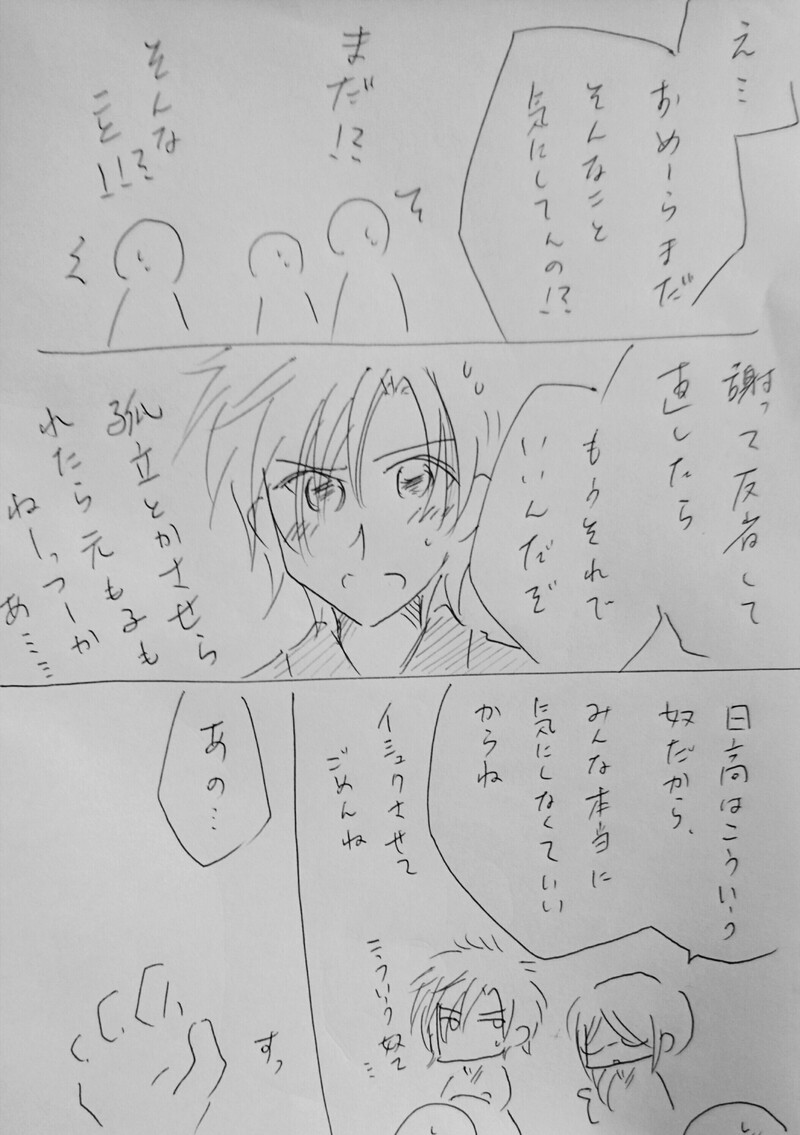 え…
おめーらまだ
そんなこと
気にしてんの!?
まだ!?
そんな
こと!!?
謝って反省して
直したら
もうそれで
いいんだぞ
孤立とかさせら
れたら元も子も
ねーっつーか
あ……
日高はこういう
奴だから、
みんな本当に
気にしなくていい
からね
イシュクさせて
ごめんね
こういう奴て
…
あの…
すっ